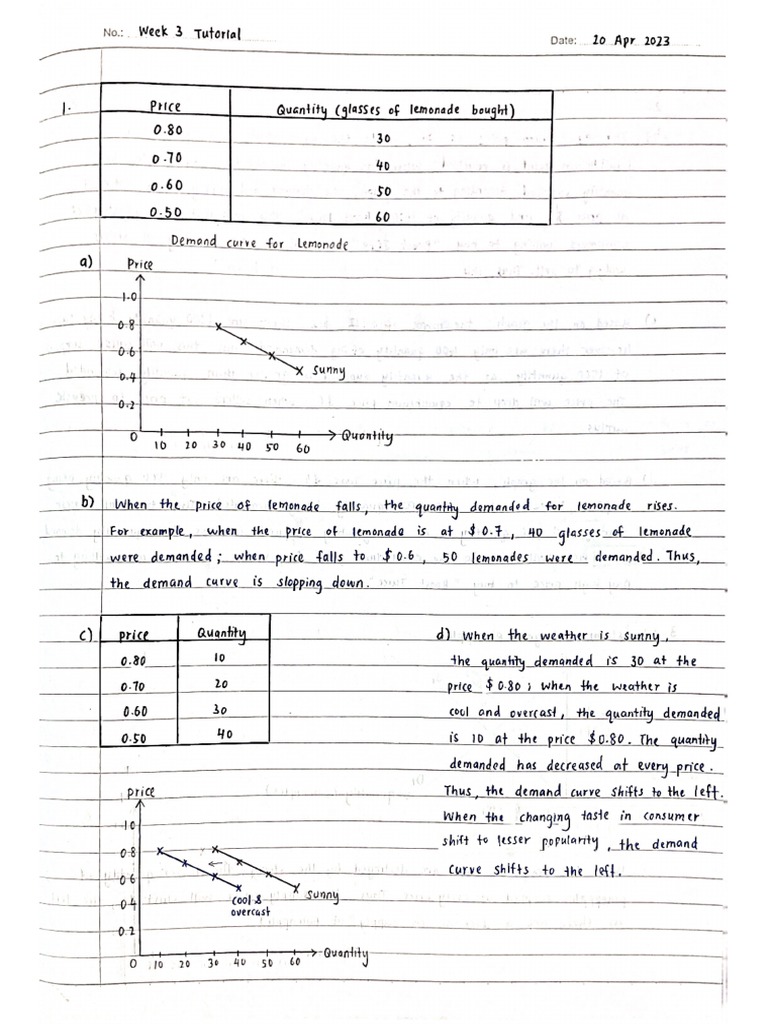 No.: Week 3 Tutorial
Date: 20 Apr 2023
1. Price Quantity (glasses of lemonade bought)
0.80 30
0.70 40
0.60 50
0.50 60
Demand curve for Lemonade
a) Price
1.0
0.8
0.6
0.4
0.2
sunny
0 10 20 30 40 50 60 Quantity
b) When the price of lemonade falls, the quantity demanded for lemonade rises.
For example, when the price of lemonade is at $0.7, 40 glasses of lemonade
were demanded; when price falls to $0.6, 50 lemonades were demanded. Thus,
the demand curve is slopping down.
c) price Quantity
0.80 10
0.70 20
0.60 30
0.50 40
d) When the weather is sunny,
the quantity demanded is 30 at the
price $0.80; when the weather is
cool and overcast, the quantity demanded
is 10 at the price $0.80. The quantity
demanded has decreased at every price.
Thus, the demand curve shifts to the left.
When the changing taste in consumer
shift to lesser popularity, the demand
curve shifts to the left.
price
1.0
0.8
0.6
0.4
0.2
cool &
overcast
sunny
0 10 20 30 40 50 60 Quantity